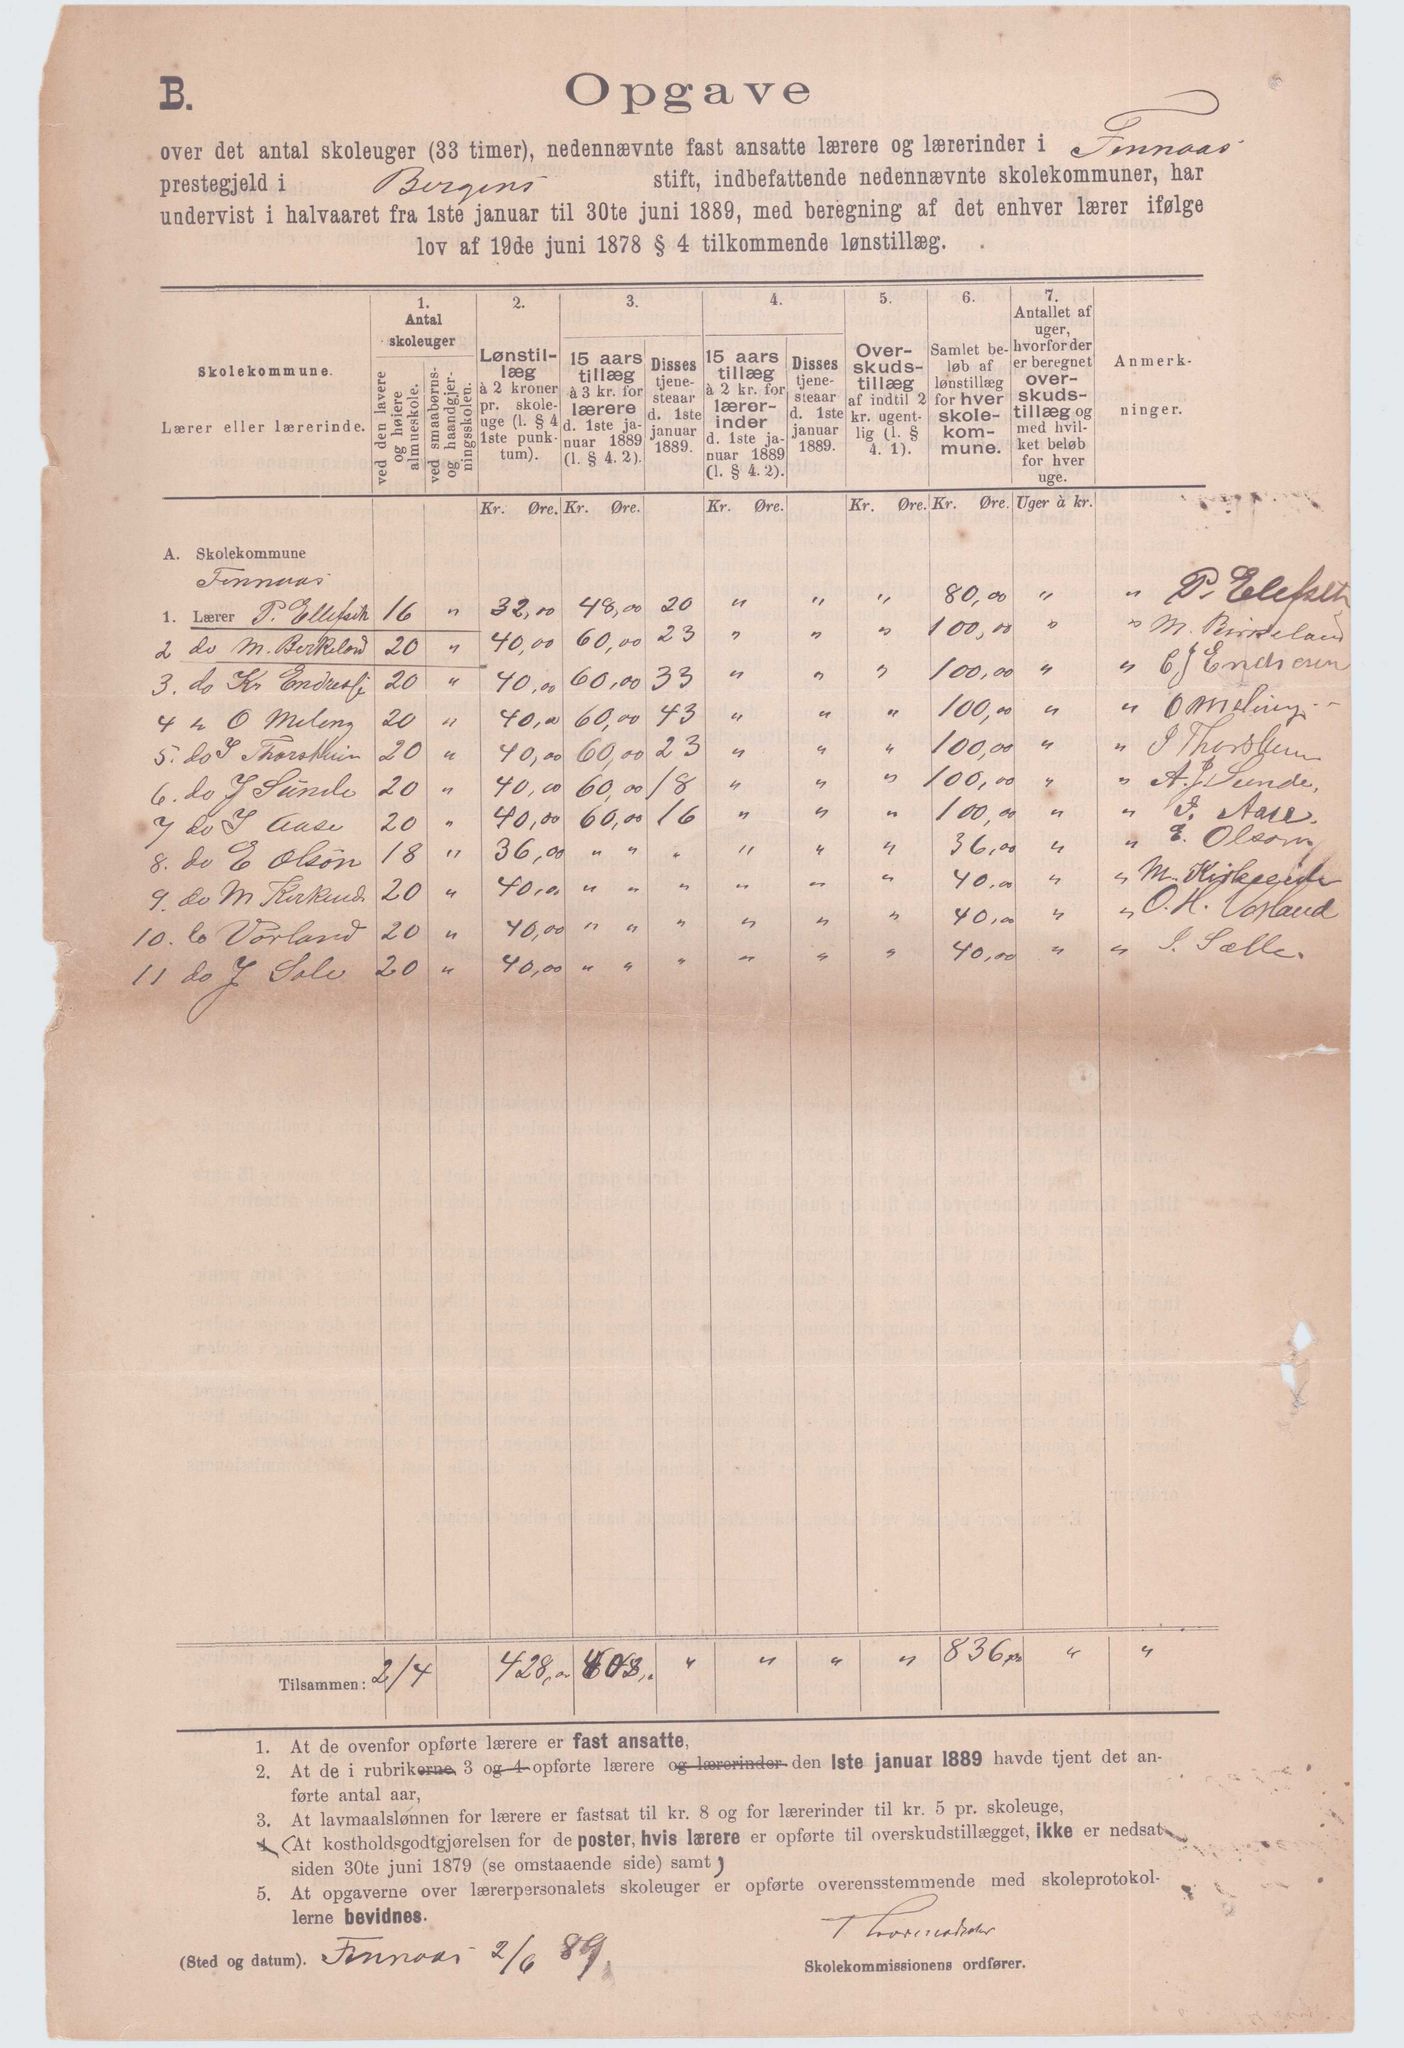 B. Opgave
over det antal skoleuger (33 timer), nedennævnte fast ansatte lærere og lærerinder i Finnaas
prestegjeld i Bergens stift, indbefattende nedennævnte skolekommuner, har
undervist i halvaaret fra 1ste januar til 30te juni 1889, med beregning af det enhver lærer ifølge
lov af 19de juni 1878 § 4 tilkommende lønstillæg.
Skolekommune.
Lærer eller lærerinde.
1.
Antal
skoleuger
ved den lavere
og høiere
almueskole.
ved smaabørns-
og haandgjer-
ningsskolen.
2.
Lønstil-
læg
à 2 kroner
pr. skole-
uge (l. § 4
1ste punk-
tum).
3.
15 aars
tillæg
à 3 kr. for
lærere
d. 1ste ja-
nuar 1889
(l. § 4. 2).
Disses
tjene-
steaar
d. 1ste
januar
1889.
4.
15 aars
tillæg
à 2 kr. for
lærer-
inder
d. 1ste ja-
nuar 1889
(l. § 4. 2).
Disses
tjene-
steaar
d. 1ste
januar
1889.
5.
Over-
skuds-
tillæg
af indtil 2
kr. ugent-
lig (l. §
4. 1).
6.
Samlet be-
løb af
lønstillæg
for hver
skole-
kom-
mune.
7.
Antallet af
uger,
hvorfor der
er beregnet
over-
skuds-
tillæg og
med hvil-
ket beløb
for hver
uge.
Anmerk-
ninger.
Kr. Øre. Kr. Øre. Kr. Øre. Kr. Øre. Kr. Øre. Uger à kr.
A. Skolekommune
Finnaas
1. Lærer P. Ellefseth 16 " 32,00 48,00 20 " " " 80,00 " " P. Elefseth
2 do M. Berkeland 20 " 40,00 60,00 23 " " " 100,00 " " M. Birkeland
3. do Kr Endresen 20 " 40,00 60,00 33 " " " 100,00 " " C J Endresen
4 " O Meling 20 " 40,00 60,00 43 " " " 100,00 " " O Meling
5. do I Thorsheim 20 " 40,00 60,00 23 " " " 100,00 " " I Thorsheim
6. do J Sunde 20 " 40,00 60,00 18 " " " 100,00 " " A. J Sunde.
7 do I Aase 20 " 40,00 60,00 16 " " " 100,00 " " I. Aase.
8. do E Olsøn 18 " 36,00 " " " " " " 36,00 " " E. Olsøn
9. do M Kirkeide 20 " 40,00 " " " " " " 40,00 " " M. Kirkeeide
10. do Vorland 20 " 40,00 " " " " " " 40,00 " " O. H. Vorland
11 do J Sele 20 " 40,00 " " " " " " 40,00 " " I. Sælle.
Tilsammen: 214 428,00 408,00 " " " " 836,00 " "
1. At de ovenfor opførte lærere er fast ansatte,
2. At de i rubrikerne 3 og 4 opførte lærere og lærerinder den 1ste januar 1889 havde tjent det an-
førte antal aar,
3. At lavmaalslønnen for lærere er fastsat til kr. 8 og for lærerinder til kr. 5 pr. skoleuge,
4. (At kostholdsgodtgjørelsen for de poster, hvis lærere er opførte til overskudstillægget, ikke er nedsat
siden 30te juni 1879 (se omstaaende side) samt)
5. At opgaverne over lærerpersonalets skoleuger er opførte overensstemmende med skoleprotokol-
lerne bevidnes.
(Sted og datum). Finnaas 2/6 89.
Skolekommissionens ordfører.